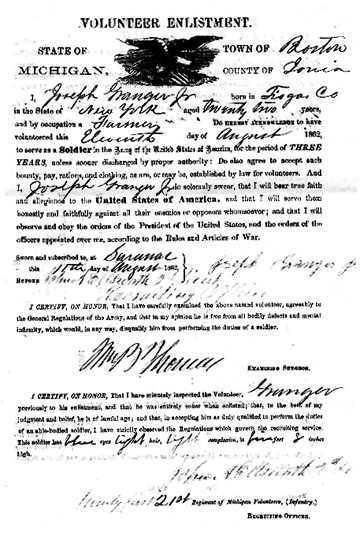 VOLUNTEER ENLISTMENT.
STATE OF
MICHIGAN,
TOWN OF Boston
COUNTY OF Ionia
I, Joseph Granger Jr born in Tioga Co
in the State of New York aged Twenty two years,
and by occupation a Farmer Do HEREBY ACKNOWLEDGE to have
volunteered this Eleventh day of August 1862,
to serve as a Soldier in the Army of the United States of America, for the period of THREE
YEARS, unless sooner discharged by proper authority: Do also agree to accept such
bounty, pay, rations, and clothing, as are, or may be, established by law for volunteers. And
I, Joseph Granger Jr do solemnly swear, that I will bear true faith
and allegiance to the United States of America, and that I will serve them
honestly and faithfully against all their enemies or opposers whomsoever; and that I will
observe and obey the orders of the President of the United States, and the orders of the
officers appointed over me, according to the Rules and Articles of War.
Sworn and subscribed to, at Saranac
this 11th day of August 1862
Joseph Granger Jr
BEFORE John
Recruiting Officer
I CERTIFY, ON HONOR, That I have carefully examined the above named volunteer, agreeably to
the General Regulations of the Army, and that in my opinion he is free from all bodily defects and mental
infirmity, which would, in any way, disqualify him from performing the duties of a soldier.
Thomas
EXAMINING SURGEON.
I CERTIFY, ON HONOR, That I have minutely inspected the Volunteer, Granger
previously to his enlistment, and that he was entirely sober when enlisted; that, to the best of my
judgment and belief, he is of lawful age; and that, in accepting him as duly qualified to perform the duties
of an able-bodied soldier, I have strictly observed the Regulations which govern the recruiting service.
This soldier has blue eyes light hair, light complexion, is five feet 8 inches
high.
John
Twenty first 21st Regiment of Michigan Volunteers, (Infantry,)
RECRUITING OFFICER.